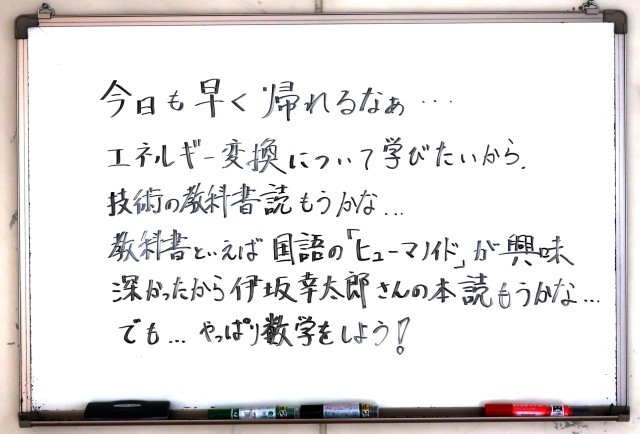 今日も早く帰れるなぁ…
エネルギー変換について学びたいから、
技術の教科書読もうかな…
教科書といえば国語の「ヒューマノイド」が興味
深かったから伊坂幸太郎さんの本読もうかな…
でも…やっぱり数学をしよう!